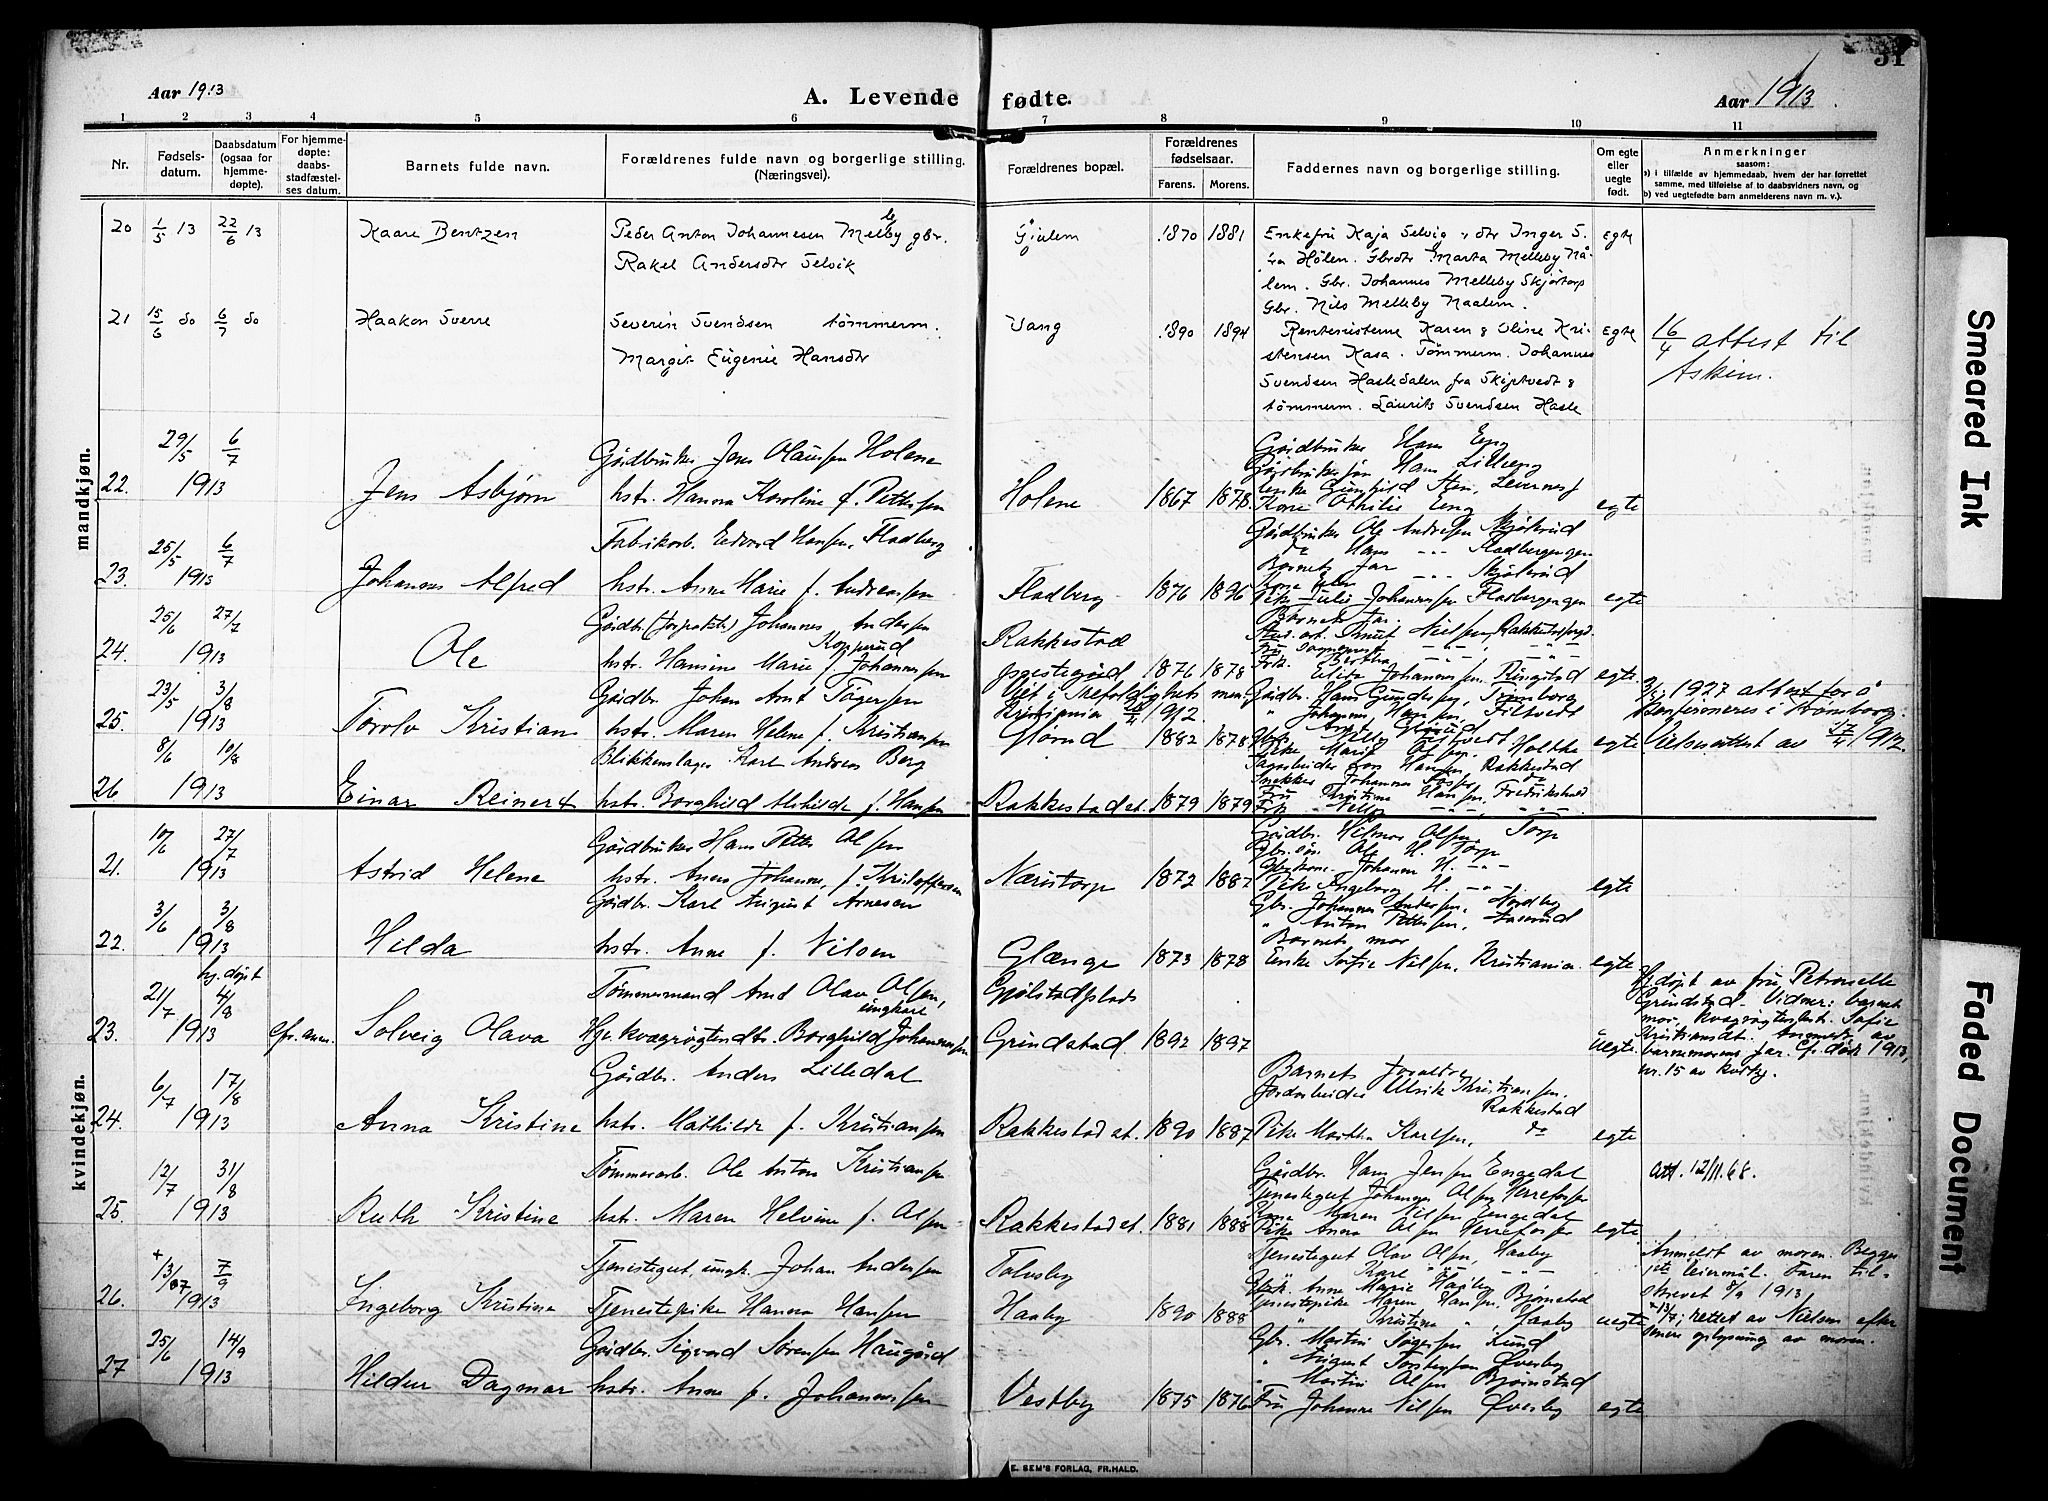 31
Aar 1913
A. Levende fødte.
Aar 1913.
1 2 3 4 5 6 7 8 9 10 11
Nr.
Fødsels-
datum.
Daabsdatum
(ogsaa for
hjemme-
døpte).
For hjemme-
døpte:
daabs-
stadfæstel-
ses datum.
Barnets fulde navn.
Forældrenes fulde navn og borgerlige stilling.
(Næringsvei).
Forældrenes bopæl.
Forældrenes
fødselsaar.
Farens. Morens.
Faddernes navn og borgerlige stilling.
Om egte
eller
uegte
født.
Anmerkninger
saasom:
a) i tilfælde av hjemmedaab, hvem der har forrettet
samme, med tilføielse af to daabsvidners navn, og
b) ved uegtefødte barn anmelderens navn m. v.).
mandkjøn.
20 1/5 13 22/6 13 Kaare Bentzen
Peder Anton Johannesen Melby gbr.
Rakel Andersdtr Selvik
1870 1881
Enkefru Kaja Selvig & dtr Inger S.
fra Hølen. Gbrdtr Marta Melleby Nå-
lem. Gbr. Johannes Melleby Skjørtorp
Gbr. Nils Melleby Naalem.
egte
21 15/6 do 6/7 do Haakon Sverre
Severin Svendsen tømmerm.
Margit Eugenie Hansdtr
Vang 1890 1894
Rentenisterne Karen & Oline Kri-
stensen Kasa. Tømmerm. Johannes
Svendsen Hasledalen fra Skiptvedt &
tømmerm. Laurits Svendsen Hasle
egte
16/4 attest til
Askim.
22. 29/5 1913 6/7 Jens Asbjørn
Gårdbruker Jens Olausen Holene
hstr. Hanna Karoline f. Pettersen
Holene 1867 1878.
Gårdbruker Hans Eng
Gårdbrukersøn Hans Lilleeng
Kone Othilie Eng
egte
23. 25/5 1913 6/7 Johannes Alfred
Fabrikarb. Edvard Hansen, Fladberg
hstr. Anne Marie f. Andreassen
Fladberg 1876 1896
Gårdbruker Ole Andresen Skjøkerud
do Hans -"- Fladbergengen
Barnets far -"- Skjøkerud
Pike Julie Johannessen Fladbergengen
egte
24. 25/6 1913 27/7 Ole
Gårdbr. (forpakter) Johannes Andersen
Kopperud
hstr. Hansine Marie f. Johannessen
Rakkestad
prestegård 1876 1878
Barnets far.
egte
25. 23/5 1913 3/8 Torolv Kristian
Gårdbr. Johan Arnt Torgersen
hstr. Maren Helene f. Kristiansen
Viet i Trefoldighets men.
Kristiania 1912.
1882 1878
Gårdbr. Hans Gundersen, Tomborg
" Johannes Hansen, Filtvedt
egte
1927 attest for å
konfirmeres i
Vielsesattest av 17/4 1912
26. 8/6 1913 10/8 Einar Reinert
Blikkenslager Karl Andreas Berg
hstr. Borghild Mathilde f. Hansen
Rakkestad st. 1879 1879
kvindekjøn.
21. 10/6 1913 27/7 Astrid Helene
Gårdbruker Hans Petter Olsen
hstr. Anna Johanne, f. Kristoffersen
Næristorp 1872 1887
Gårdbr. Hilmar Olsen, Torp
Gbr.søn Ole H. Torp
Pike Ingeborg H. -"-
egte
22. 3/6 1913 3/8 Hilda
Gårdbr. Karl August Arnesen
hstr. Anne f. Nilsen
Glænge 1873 1878
Gbr. Johannes Andersen, Nordby
" Anton Pettersen,
Barnets mor
Enke Sofie Nilsen, Kristiania.
egte
23. 21/7 1913 hj.døpt 4/8 cfr. anm. Solveig Olava
Tømmermand Arnt Olav Olsen,
ungkarl
Pje. kvægrøgterdtr. Borghild Johannessen
Gjølstadplads
Grindstad. 1892 1897
uegte.
Hj.døpt av fru Petronelle
Grindstad. Vidner: barnets
mor, kvægrøgterhstr. Sofie
Kristiansdt. Anmeldt av
barnemorens far. Cfr. døde 1913,
nr. 15 av kvkj.
24. 6/7 1913 17/8 Anna Kristine
Gårdbr. Anders Lilledal
hstr. Mathilde f. Kristiansen
Rakkestad st. 1890 1887
Barnets forældre
Jordarbeider Ulrik Kristiansen,
Rakkestad
Pike Martha Karlsen, do
egte
25. 12/7 1913 31/8 Ruth Kristine
Tømmerarb. Ole Anton Kristiansen
hstr. Maren Helvine f. Olsen
Rakkestad st. 1881 1888
Gårdbr. Hans Jensen Engedal
Tjenestegut Johannes Olsen Herrefosser
Kone Maren Nilsen Engedal
Pike Anna Olsen Herrefosser
egte
att. 12/11.68.
26. + 1/3/87 1913 7/9 Ingeborg Kristine
Tjenestegut, ungk. Johan Andersen
Tjenestepike Hanna Hansen
Talvsby
Haaby 1890 1888
Tjenestegut Olav Olsen, Haaby
" Karl " -"-
Anne Marie Haaby
Tjenestepike Maren Hansen, Bjørnstad
" Kristine ", Haaby
uegte
Anmeldt av moren. Begges
1ste leiermål. Faren til-
skrevet 8/9 1913
+ 13/7; rettet av Nielsen efter
senere oplysning av moren.
27 25/6 1913 14/9 Hildur Dagmar
Gårdbr. Sigvard Sørensen Haugård
hstr. Anne f. Johannessen
Vestby 1875 1876
Gbr. Martin Torgersen Lund
" August Torstensen Øverby
" Martin Olsen Bjørnstad
Fru Johanne Nilsen Øverby
egte
E. SEM'S FORLAG, FR.HALD.
Smeared Ink
Faded Document